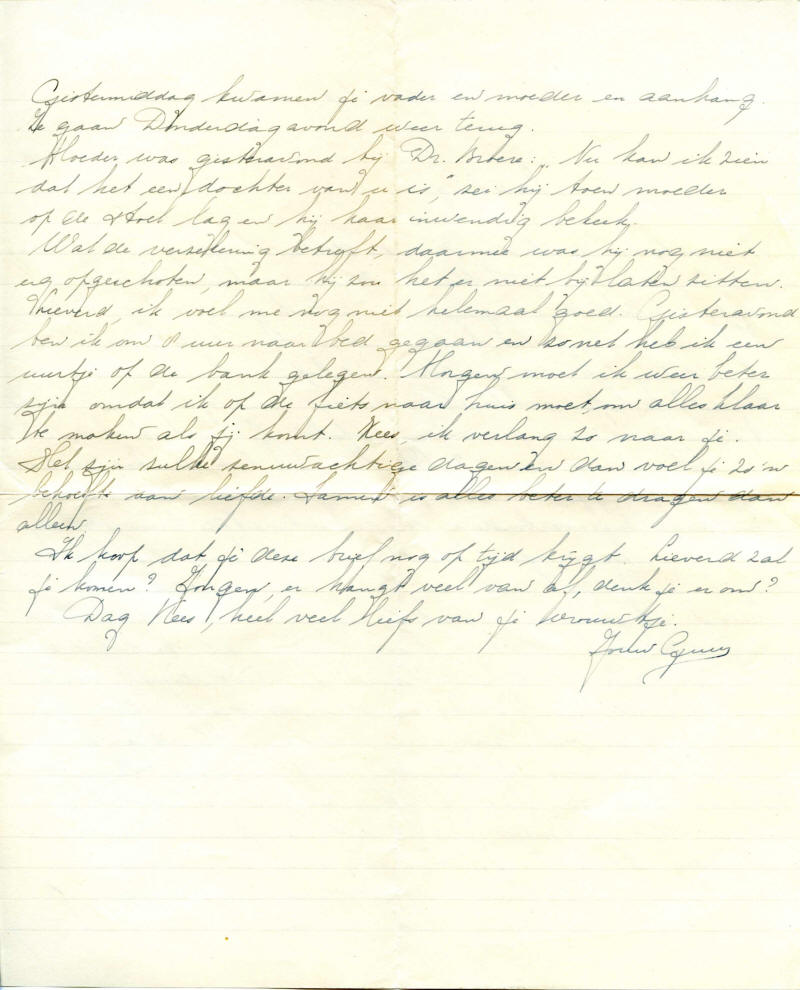 Gistermiddag kwamen je vader en moeder en aanhang.
Ze gaan Donderdagavond weer terug.
Moeder was gisteravond bij Dr. Broere: „Nu kan ik zien
dat het een dochter van u is,” zei hij toen moeder
op de stoel lag en hij haar inwendig bekeek.
Wat de verzekering betreft, daarmee was hij nog niet
erg opgeschoten, maar hij zou het er niet bij laten zitten.
Lieverd, ik voel me nog niet helemaal goed. Gisteravond
ben ik om 8 uur naar bed gegaan en zonet heb ik een
uurtje op de bank gelegen. Morgen moet ik weer beter
zijn omdat ik op de fiets naar huis moet, om alles klaar
te maken als jij komt. Kees, ik verlang zo naar je.
Het zijn zulke zenuwachtige dagen en dan voel je zo'n
behoefte aan liefde. Samen is alles beter te dragen dan
alleen.
Ik hoop dat je deze brief nog op tijd krijgt. Lieverd zal
je komen? Jongen, er hangt veel van af, denk je er om?
Dag Kees, heel veel liefs van je vrouwtje.
Jouw